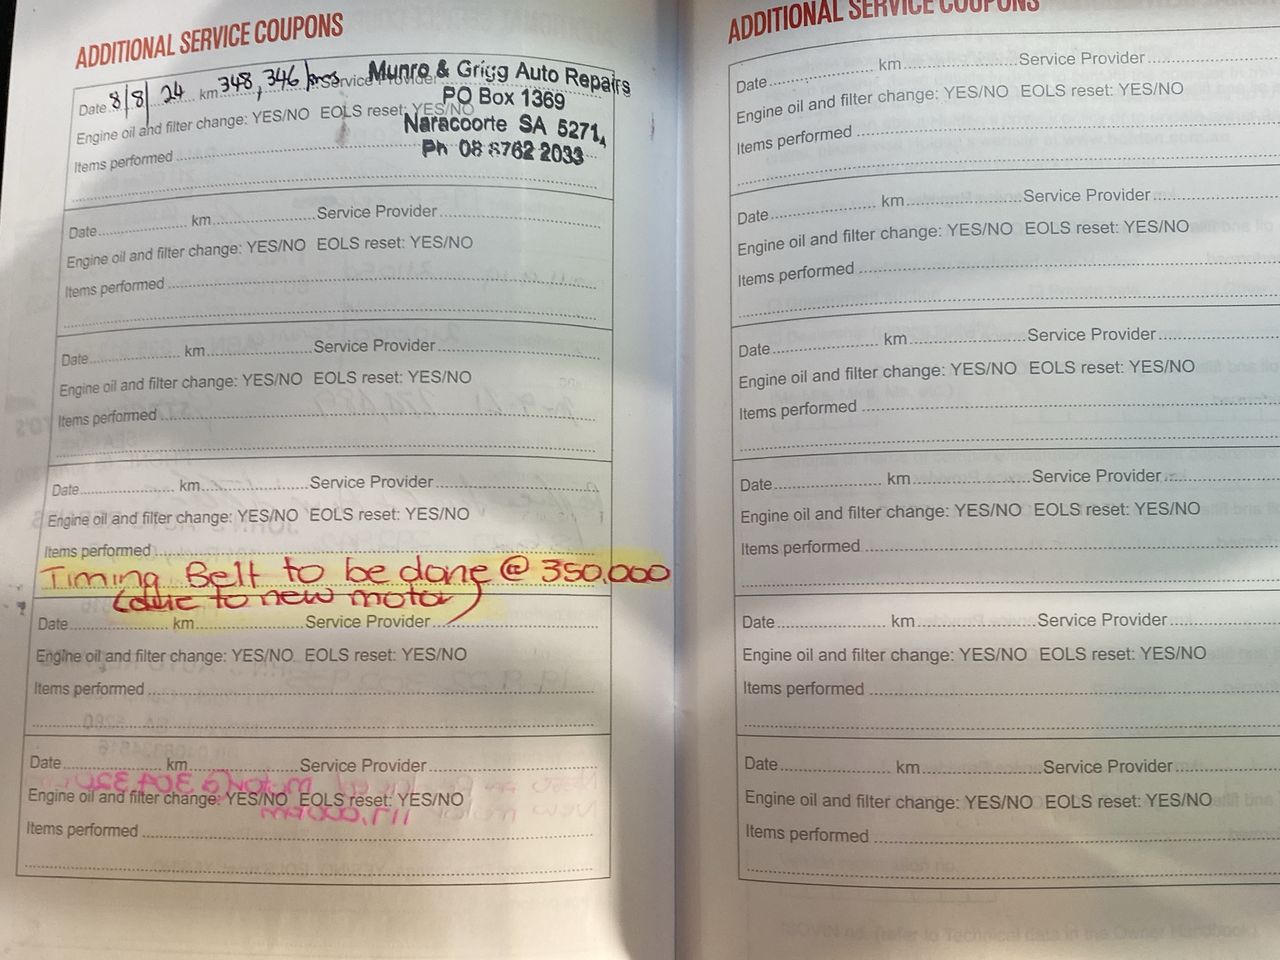 ADDITIONAL SERVICE COUPONS
Date 8/8/24 km 348,346 kms Service Provider
Munro & Grigg Auto Repairs
PO Box 1369
Naracoorte SA 5271
Ph 08 8762 2033
Engine oil and filter change: YES/NO EOLS reset: YES/NO
Items performed
Date km Service Provider
Engine oil and filter change: YES/NO EOLS reset: YES/NO
Items performed
Date km Service Provider
Engine oil and filter change: YES/NO EOLS reset: YES/NO
Items performed
Date km Service Provider
Engine oil and filter change: YES/NO EOLS reset: YES/NO
Items performed
Timing Belt to be done @ 350.000
(due to new motor)
Date km Service Provider
Engine oil and filter change: YES/NO EOLS reset: YES/NO
Items performed
Date km Service Provider
Engine oil and filter change: YES/NO EOLS reset: YES/NO
Items performed
ADDITIONAL SERVICE COUPONS
Date km Service Provider
Engine oil and filter change: YES/NO EOLS reset: YES/NO
Items performed
Date km Service Provider
Engine oil and filter change: YES/NO EOLS reset: YES/NO
Items performed
Date km Service Provider
Engine oil and filter change: YES/NO EOLS reset: YES/NO
Items performed
Date km Service Provider
Engine oil and filter change: YES/NO EOLS reset: YES/NO
Items performed
Date km Service Provider
Engine oil and filter change: YES/NO EOLS reset: YES/NO
Items performed
Date km Service Provider
Engine oil and filter change: YES/NO EOLS reset: YES/NO
Items performed